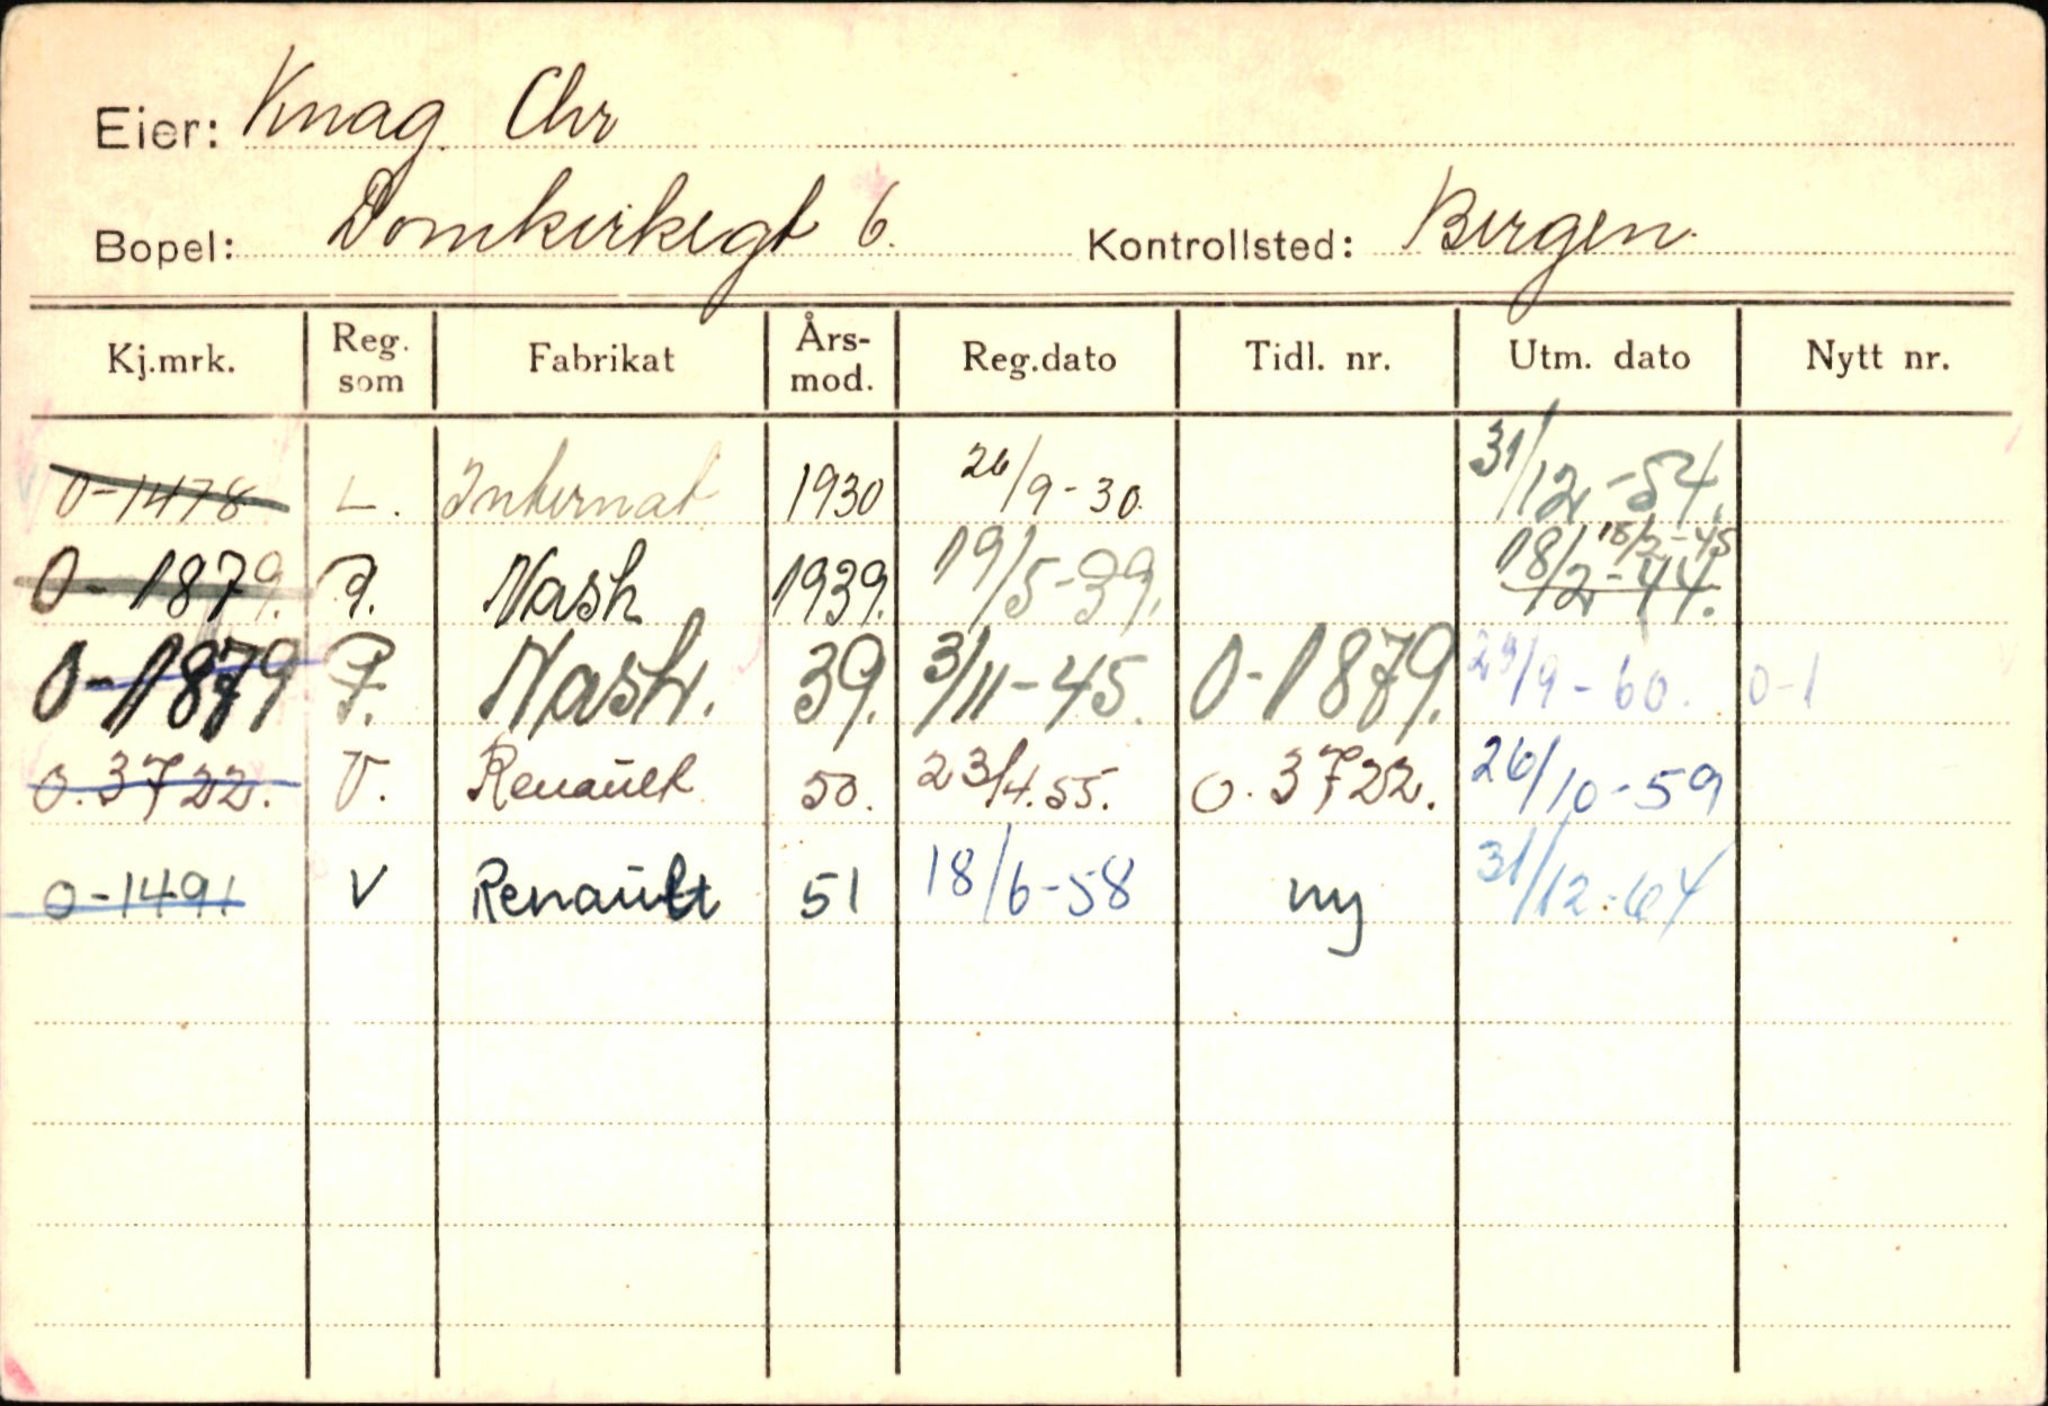 Eier: Knag. Chr
Bopel: Domkirkegt 6. Kontrollsted: Bergen.
Kj.mrk. Reg. som Fabrikat Års-mod. Reg.dato Tidl. nr. Utm. dato Nytt nr.
O-1478 L. Internat 1930 26/9-30. 31/12-54.
O-1879. P. Nash 1939. 19/5-39. 18/2-44. 18/2-45
O-1879 P. Nash. 39. 3/11-45. O-1879. 29/9-60. O-1
O.3722. V. Renault 50. 23/4.55. O.3722. 26/10-59
O-1491 V Renault 51 18/6-58 ny 31/12-64